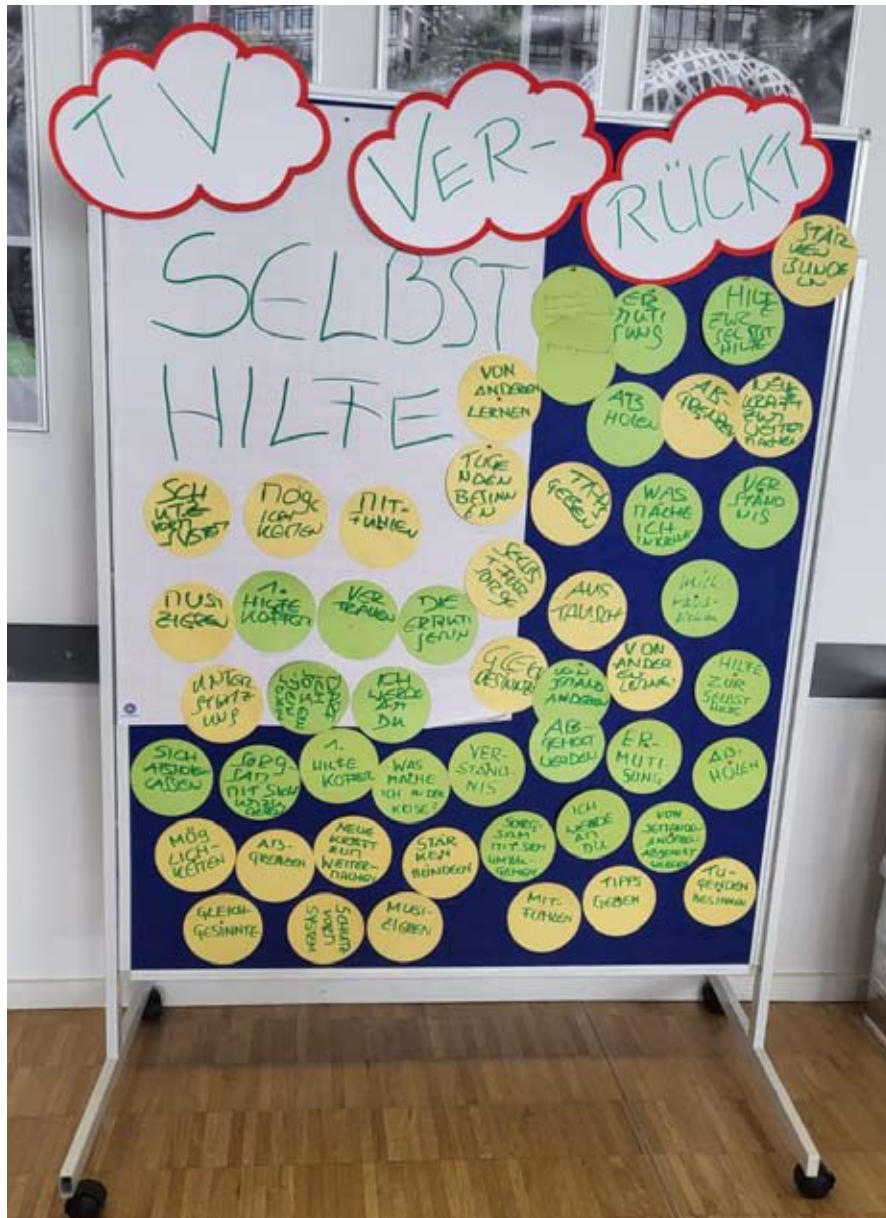 TV
VER-
RÜCKT
SELBST
HILFE
STÄR
KEN
BÜNDE
LN
ER
MUTI
GUNG
HILFE
ZUR
SELBST
HILFE
VON
ANDEREN
LERNEN
AB
HOLEN
AB
NEUE
KRAFT
ZUM
WEITER
MACHEN
TUGE
NDEN
BESINN
EN
TIPPS
GEBEN
WAS
MACHE
ICH
VER
STÄND
NIS
SCH
UTZ
VORM
SYSTEM
MÖG
LICH
KEITEN
MIT-
FÜHLEN
SELBS
T FÜR
SORGE
AUS
TAUSCH
MUSI
ZIEREN
1.
HILFE
KOFFER
VER
TRAUEN
DIE
GLEICH
GESINNTE
VON
JEMAND
ANDEREN
VON
ANDER
EN
HILFE
ZUR
SELBST
HILFE
UNTER
STÜTZ
UNG
DARF
ICH
ICH
WERDE
AM
DU
AB-
GEHOLT
WERDEN
ER-
MUTI
GUNG
AB-
HOLEN
SICH
LASSEN
SORG-
SAM
MIT SICH
UMZU
GEHEN
1.
HILFE
KOFFER
WAS
MACHE
ICH IN DER
KRISE?
VER-
STÄND-
NIS
MÖG
LICH-
KEITEN
AB-
NEUE
KRAFT
ZUM
WEITER-
MACHEN
STÄR
KEN
BÜNDELN
SORG-
SAM
MIT SICH
UMZU-
GEHEN
ICH
WERDE
AM
DU
VON
JEMANDEN
WERDEN
GLEICH-
GESINNTE
SCHUTZ
VORM
SYSTEM
MUSI-
ZIEREN
MIT-
FÜHLEN
TIPPS
GEBEN
TU-
GENDEN
BESINNEN